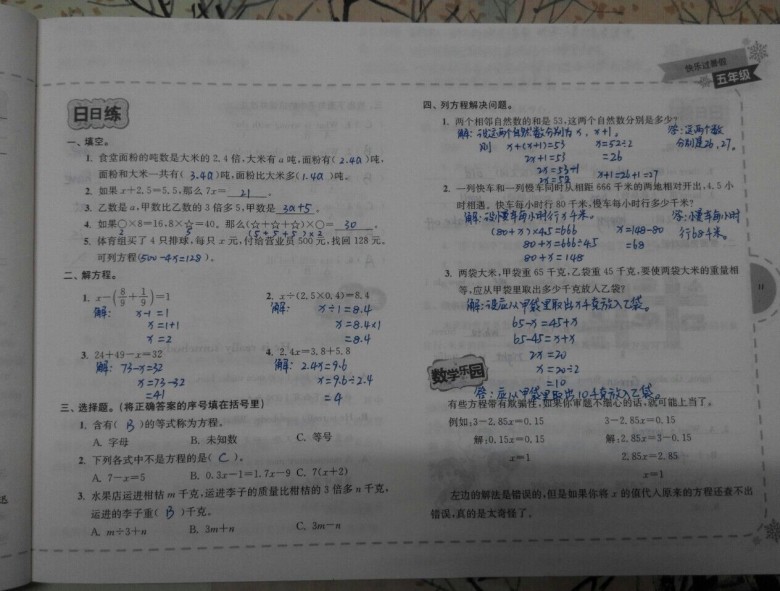 快乐过暑假
五年级
日日练
一、填空。
1. 食堂面粉的吨数是大米的 2.4 倍,大米有 a 吨,面粉有( 2.4a )吨,
面粉和大米一共有( 3.4a )吨,面粉比大米多( 1.4a )吨。
2. 如果 x+2.5=5.5,那么 7x= 21 。
3. 乙数是 a,甲数比乙数的 3 倍多 5,甲数是 3a+5 。
4. 如果○×8=16,8×☆=40。那么(☆+☆+☆)×○= 30 。
2 5 (5+5+5)×2
5. 体育组买了 4 只排球,每只 x 元,付给营业员 500 元,找回 128 元。
可列方程(500-4x=128)。
二、解方程。
1. x-(8/9+1/9)=1
解: x-1=1
x=1+1
x=2
2. x÷(2.5×0.4)=8.4
解: x÷1=8.4
x=8.4×1
=8.4
3. 24+49-x=32
解: 73-x=32
x=73-32
=41
4. 2.4x=3.8+5.8
解: 2.4x=9.6
x=9.6÷2.4
=4
三、选择题。(将正确答案的序号填在括号里)
1. 含有( B )的等式称为方程。
A. 字母 B. 未知数 C. 等号
2. 下列各式中不是方程的是( C )。
A. 7-x=5 B. 0.3x-1=1.7x-9 C. 7(x+2)
3. 水果店运进柑桔 m 千克,运进李子的质量比柑桔的 3 倍多 n 千克,
运进的李子重( B )千克。
A. m÷3+n B. 3m+n C. 3m-n
四、列方程解决问题。
1. 两个相邻自然数的和是 53,这两个自然数分别是多少?
解:设这两个自然数分别为x,x+1。
则 x+(x+1)=53
2x+1=53
2x=53-1
2x=52
x=52÷2
=26
x+1=26+1=27
答:这两个数
分别是26,27。
2. 一列快车和一列慢车同时从相距 666 千米的两地相对开出,4.5 小
时相遇。快车每小时行 80 千米,慢车每小时行多少千米?
解:设慢车每小时行x千米。
(80+x)×4.5=666
80+x=666÷4.5
80+x=148
x=148-80
=68
答:慢车每小时
行68千米。
3. 两袋大米,甲袋重 65 千克,乙袋重 45 千克,要使两袋大米的重量相
等,应从甲袋里取出多少千克放入乙袋?
解:设应从甲袋里取出x千克放入乙袋。
65-x=45+x
65-45=x+x
2x=20
x=20÷2
=10
答:应从甲袋里取出10千克放入乙袋。
数学乐园
有些方程带有欺骗性,如果你审题不细心的话,就可能上当了。
例如:3-2.85x=0.15 3-2.85x=0.15
解:0.15x=0.15 解:2.85x=3-0.15
x=1 2.85x=2.85
x=1
左边的解法是错误的,但是如果你将 x 的值代入原来的方程还查不出
错误,真的是太奇怪了。
11